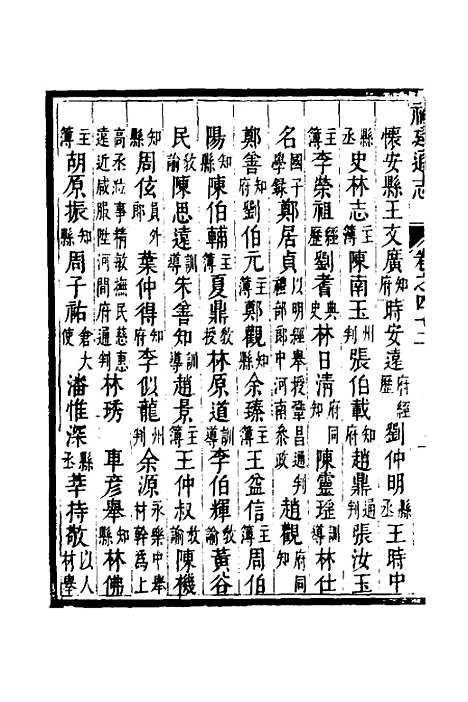 福建通志 卷之四十二
懷安縣王文廣知府時安遠府經歷劉仲明縣丞王時中
縣丞史林志主簿陳南玉州判張伯載知府趙鼎通判張汝玉
主簿李榮祖經歷劉耆典史林日清府同知陳靈瑤訓導林仕
名國子學錄鄭居貞以明經舉授鞏昌通判禮部郎中河南參政趙觀府同知
鄭善知府劉伯元主簿鄭觀知縣余臻主簿王益信主簿周伯
陽知縣陳伯輔主簿夏鼎教諭林原道訓導李伯輝教諭黃谷
民教諭陳思遠訓導朱善知訓導趙景主簿王仲叔教諭陳機
知縣周伭員外郎葉仲得知府李似龍州判余源永樂中舉材幹爲上
高丞蒞事精敏撫民慈惠遠近咸服陞河間府通判林琇 車彥舉知縣林佛
主簿胡原振知縣周子祐倉大使潘惟深縣丞莘持敬以人材舉